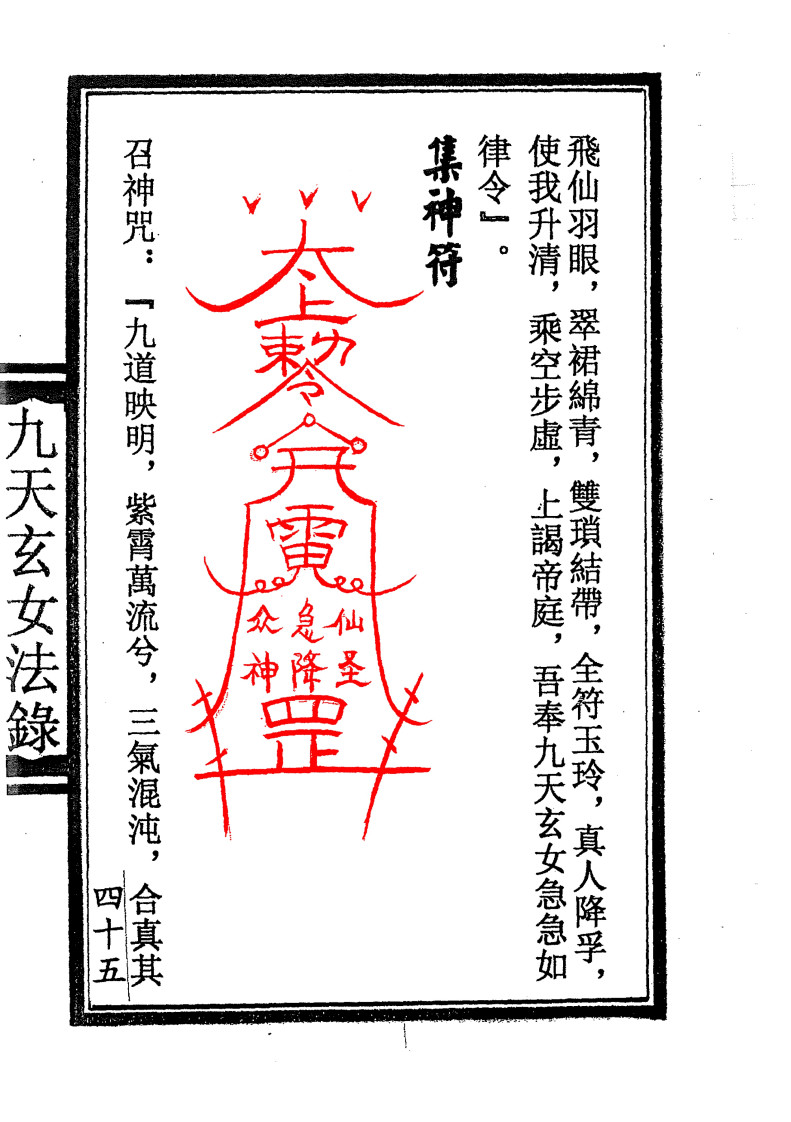 飛仙羽眼，翠裙綿青，雙瑣結帶，全符玉玲，真人降孚，
使我升清，乘空步虛，上謁帝庭，吾奉九天玄女急急如
律令』。
集神符
太上
敕令
雷
仙圣
急降
众神
罡
召神咒：『九道映明，紫霄萬流兮，三氣混沌，合真其
四十五
九天玄女法錄